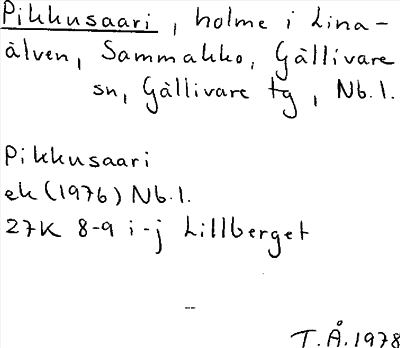 Pikkusaari, holme i Lina-
älven, Sammakko, Gällivare
sn, Gällivare tg, Nb.l.
Pikkusaari
ek (1976) Nb.l.
27K 8-9 i-j Lillberget
--
T.Å.1978